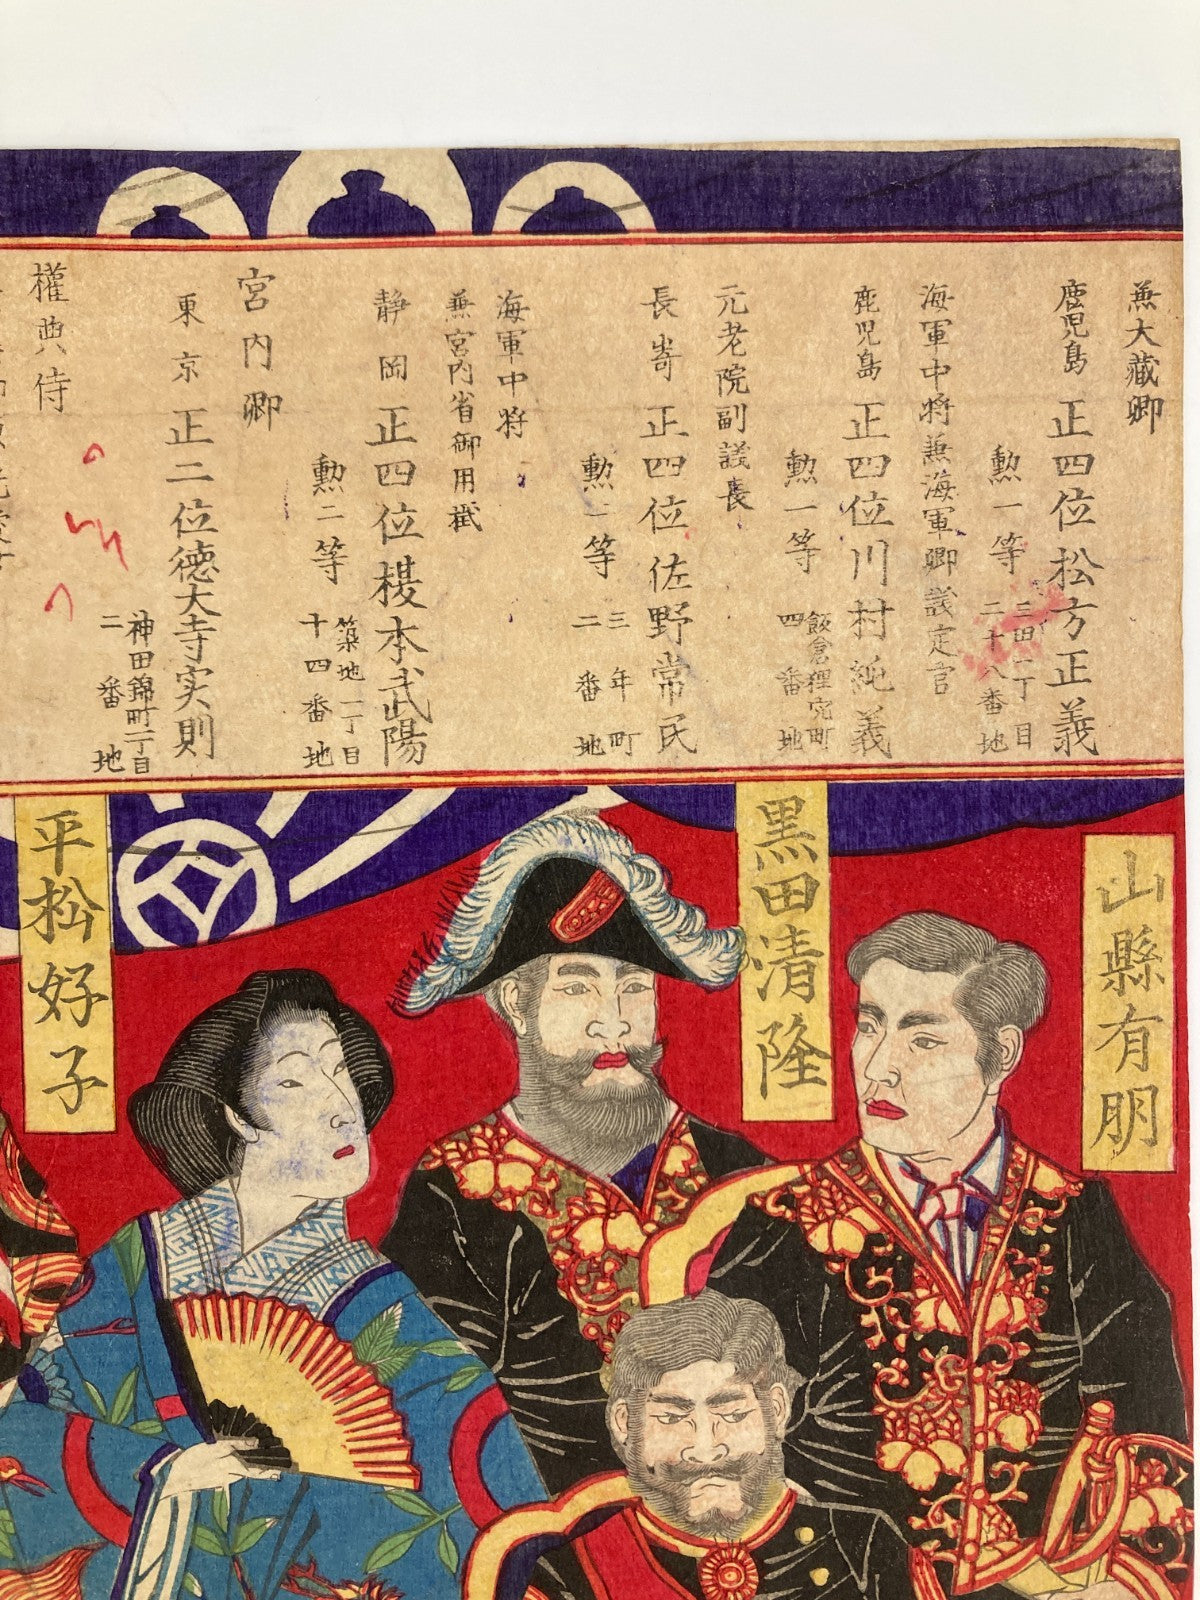 兼大藏卿
鹿児島 正四位松方正義
勲一等 三田一丁目
二十八番地
海軍中将兼海軍卿議定官
鹿児島 正四位川村純義
勲一等 飯倉狸穴町
四番地
元老院副議長
長嵜 正四位佐野常民
勲一等 三年町
二番地
海軍中将
兼宮内省御用掛
静岡 正四位榎本武陽
勲二等 築地一丁目
十四番地
宮内卿
東京 正二位徳大寺実則
神田錦町一丁目
二番地
權典侍
山縣有朋
黒田清隆
平松好子